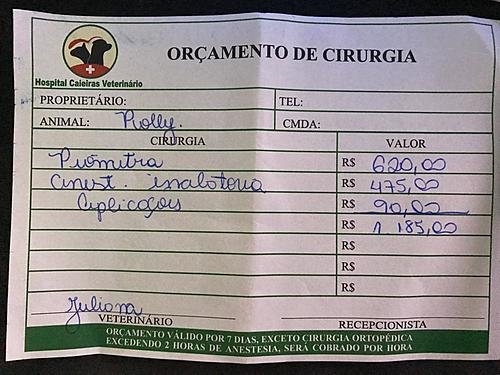 ORÇAMENTO DE CIRURGIA
Hospital Caieiras Veterinário
PROPRIETÁRIO: TEL:
ANIMAL: Polly. CMDA:
CIRURGIA VALOR
Piometra R$ 620,00
Anest. inalatoria R$ 475,00
Aplicações R$ 90,00
R$ 1 185,00
R$
R$
Juliana
VETERINÁRIO RECEPCIONISTA
ORÇAMENTO VÁLIDO POR 7 DIAS, EXCETO CIRURGIA ORTOPÉDICA
EXCEDENDO 2 HORAS DE ANESTESIA, SERÁ COBRADO POR HORA